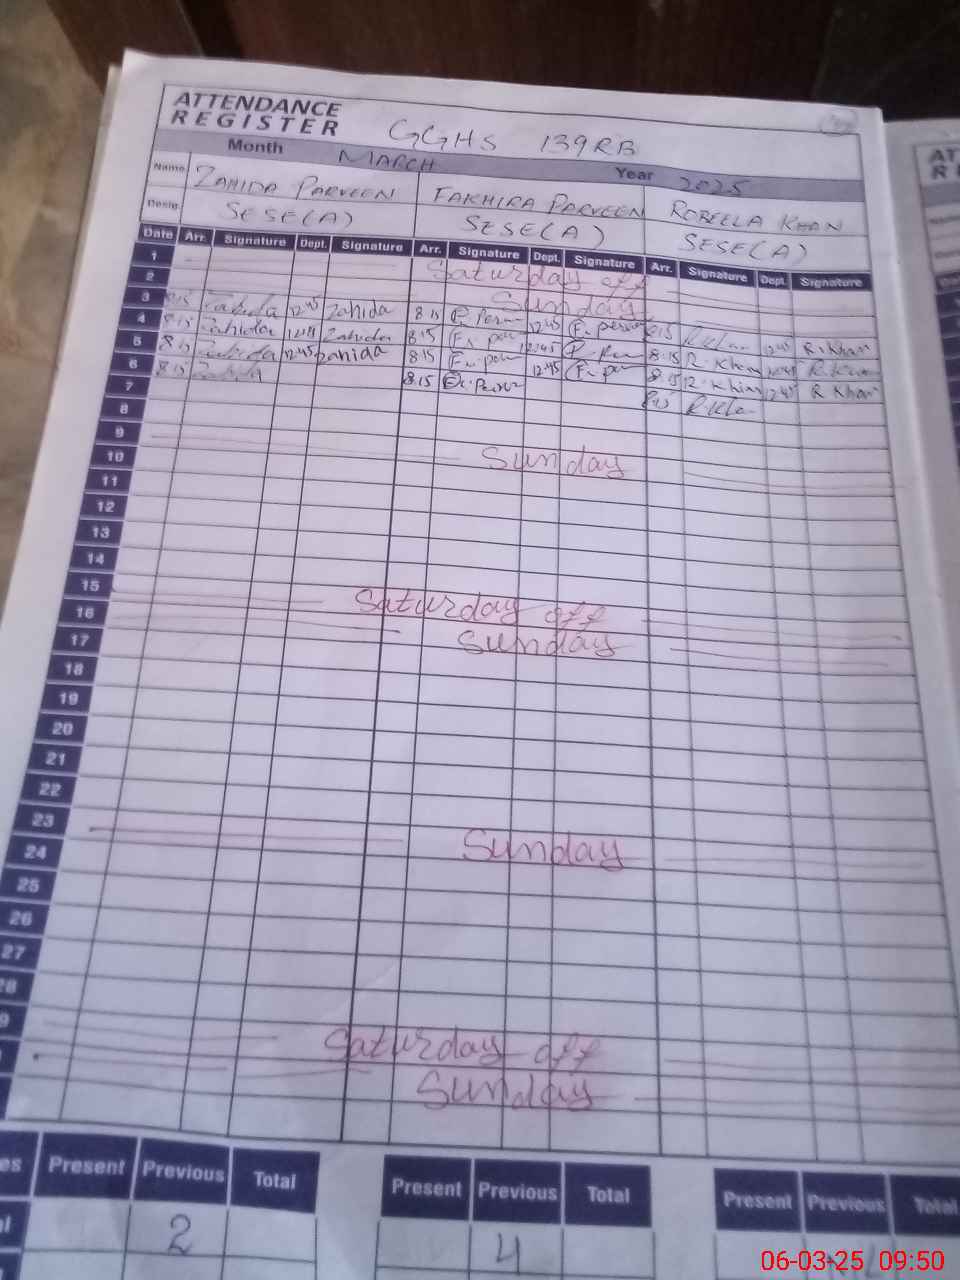 ATTENDANCE
REGISTER
GGHS 139RB
Month MARCH Year 2025
Name ZAHIDA PARVEEN FAKHIRA PARVEEN ROBEELA KHAN
Desig. SESE(A) SESE(A) SESE(A)
Date Arr. Signature Dept. Signature Arr. Signature Dept. Signature Arr. Signature Dept. Signature
1 Saturday off
2 Sunday
3 8:15 Zahida 12:45 Zahida 8:15 12:45 8:15 R.Khan 12:45 R.Khan
4 8:15 Zahida Zahida 8:15 12:45 8:15 R.Khan R.Khan
5 8:15 Zahida 12:45 Zahida 8:15 12:45 8:15 R.Khan 12:45 R Khan
6 8:15 Zahida 8:15 8:15 R.Khan
7
8
9 Sunday
10
11
12
13
14
15 Saturday off
16 Sunday
17
18
19
20
21
22
23 Sunday
24
25
26
27
28
Saturday off
Sunday
Present Previous Total Present Previous Total Present Previous Total
2 4
06-03-25 09:50